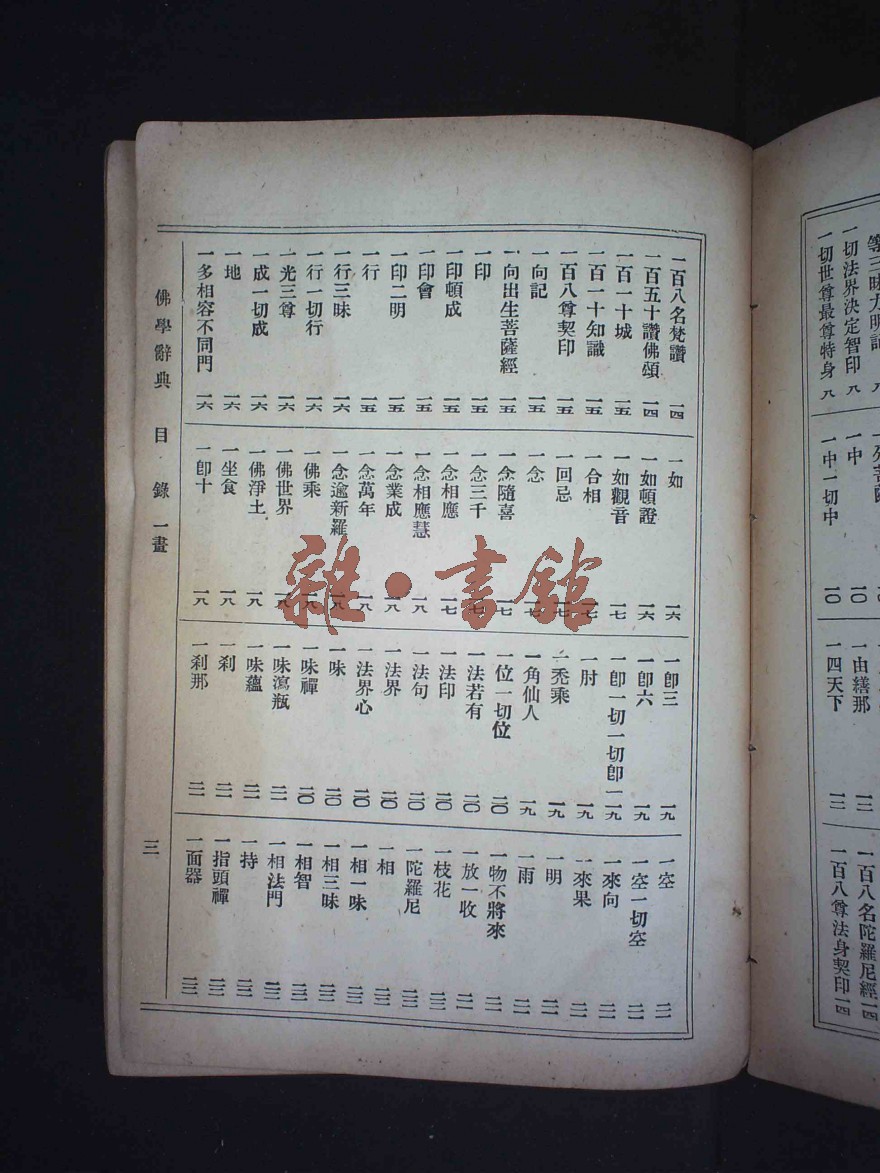 一切法界決定智印 八
一切世尊最尊特身 八
一中 一〇
一中一切中 一〇
一由繕那 一二
一四天下 一二
一百八名陀羅尼經 一四
一百八尊法身契印 一四
一百八名梵讚 一四
一百五十讚佛頌 一四
一百一十城 一五
一百一十知識 一五
一百八尊契印 一五
一向記 一五
一向出生菩薩經 一五
一印 一五
一印頓成 一五
一印會 一五
一印二明 一五
一行 一五
一行三昧 一六
一行一切行 一六
一光三尊 一六
一成一切成 一六
一地 一六
一多相容不同門 一六
一如 一六
一如頓證 一六
一如觀音 一七
一合相 一七
一回忌 一七
一念 一七
一念隨喜 一七
一念三千 一七
一念相應 一七
一念相應慧 一八
一念業成 一八
一念萬年 一八
一念逾新羅 一八
一佛乘 一八
一佛世界 一八
一佛淨土 一八
一坐食 一八
一卽十 一八
一卽三 一九
一卽六 一九
一卽一切一切卽一 一九
一肘 一九
一禿乘 一九
一角仙人 一九
一位一切位 二〇
一法若有 二〇
一法印 二〇
一法句 二〇
一法界 二〇
一法界心 二〇
一味 二〇
一味禪 二〇
一味瀉瓶 二一
一味蘊 二一
一刹 二一
一刹那 二一
一空 二一
一空一切空 二一
一來向 二一
一來果 二一
一明 二一
一雨 二一
一物不將來 二一
一放一收 二一
一枝花 二二
一陀羅尼 二二
一相 二二
一相一味 二二
一相三昧 二二
一相智 二二
一相法門 二二
一持 二二
一指頭禪 二二
一面器 二二
佛學辭典 目錄 一畫 三
雜·書館